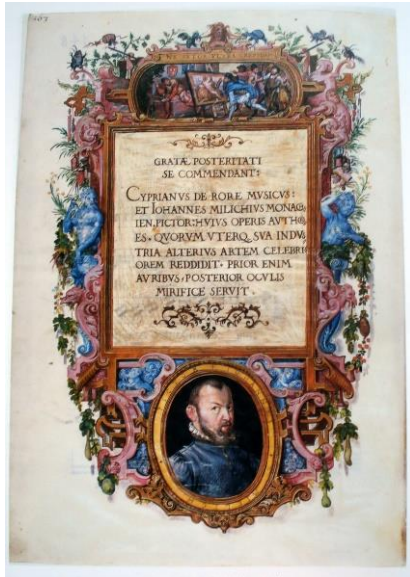 GRATÆ POSTERITATI
SE COMMENDANT:
CYPRIANVS DE RORE MVSICVS:
ET IOHANNES MILICHIVS MONACEN
IEN: PICTOR: HVIVS OPERIS AVTHOR
ES. QVORVM VTERQ, SVA INDVS
TRIA ALTERIVS ARTEM CELEBRI
OREM REDDIDIT. PRIOR ENIM
AVRIBVS, POSTERIOR OCVLIS
MIRIFICE SERVIT.